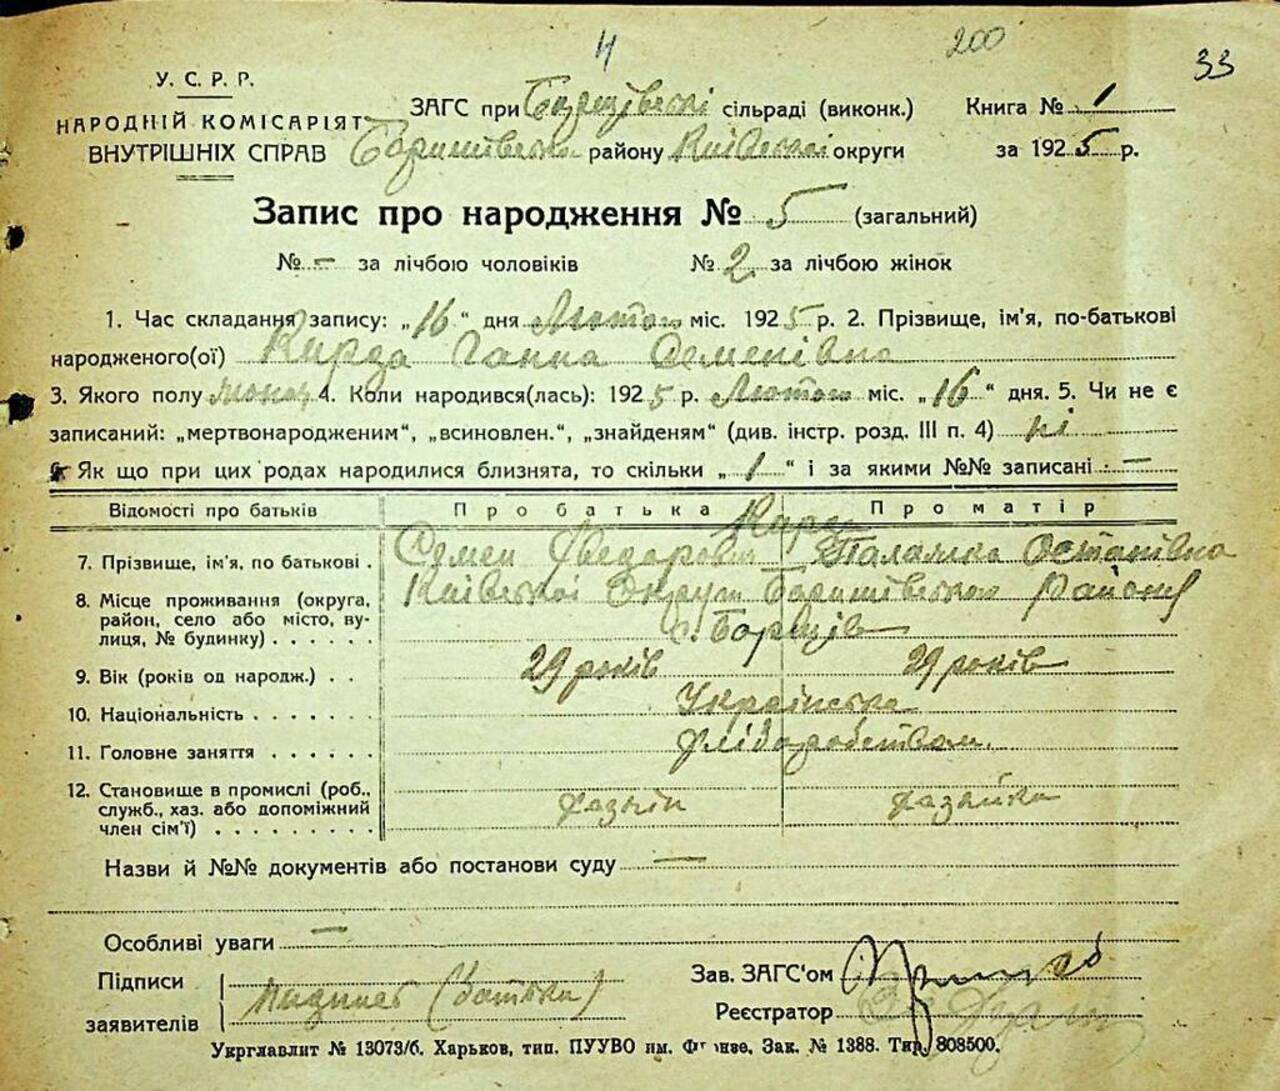 4 200 33
У. С. Р. Р.
НАРОДНІЙ КОМІСАРІЯТ
ВНУТРІШНІХ СПРАВ
ЗАГС при Борщівські сільраді (виконк.) Книга № 1
Баришівська району Київської округи за 1925 р.
Запис про народження № 5 (загальний)
№ – за лічбою чоловіків № 2 за лічбою жінок
1. Час складання запису: „16“ дня Лютого міс. 1925 р. 2. Прізвище, ім'я, по-батькові
народженого(ої) Кирда Ганна Семенівна
3. Якого полу 4. Коли народився(лась): 1925 р. Лютого міс. „16“ дня. 5. Чи не є
записаний: „мертвонародженим“, „всиновлен.“, „знайденям“ (див. інстр. розд. III п. 4) ні
6. Як що при цих родах народилися близнята, то скільки „1“ і за якими №№ записані –
Відомості про батьків Про батька Про матір
7. Прізвище, ім'я, по батькові . Семен Федорович Палажка Остапівна
8. Місце проживання (округа, район, село або місто, вулиця, № будинку) . . . . . . Київської Округи Баришівського Району
с. Борщів
9. Вік (років од народж.) . . 29 років 29 років
10. Національність . . . . . . . Українська
11. Головне заняття . . . . . . . хліборобством.
12. Становище в промислі (роб., служб., хаз. або допоміжний член сім'ї) . . . . . . . . . хазяїн хазяйка
Назви й №№ документів або постанови суду —
Особливі уваги —
Підписи
заявителів (батька)
Зав. ЗАГС'ом
Реєстратор
Укрглавліт № 13073/б. Харьков, тип. ПУУВО им. Фрунзе. Зак. № 1388. Тир. 808500.